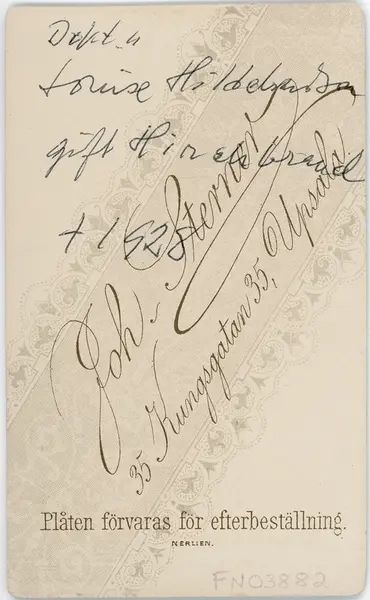 Louise Hildebrandson
gift Hirschbrand
+ 1928
Joh. Sterner
35 Kungsgatan 35, Upsala.
Plåten förvaras för efterbeställning.
NERLIEN.
FN03882